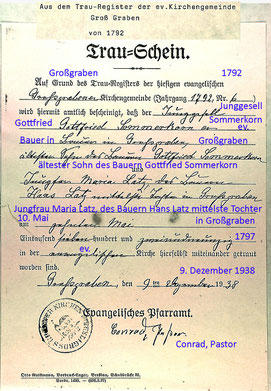 Aus dem Trau-Register der ev.Kirchengemeinde
Groß Graben
von 1792
Trau-Schein.
Großgraben 1792
Auf Grund des Trau-Registers der hiesigen evangelischen
Großgrabener Kirchengemeinde (Jahrgang 1792, Nr. 6)
Junggesell
wird hiermit amtlich bescheinigt, daß der Junggesell
Sommerkorn
Gottfried Gottfried Sommerkorn ev.
ev.
Bauer in Bauer in Großgraben, Großgraben
ältesten Sohn des Bauern Gottfried Sommerkorn
ältester Sohn des Bauern Gottfried Sommerkorn
und
Jungfrau Maria Latz, des Bauern
Hans Latz mittelste Tochter in Großgraben
Jungfrau Maria Latz, des Bauern Hans Latz mittelste Tochter
10. Mai in Großgraben
am zehnten Mai
Eintausend sieben hundert und zweiundneunzig 1797
ev.
in der evangelischen Kirche hierselbst miteinander getraut
worden sind.
9. Dezember 1938
Großgraben, den 9ten Dezember 1938
Evangelisches Pfarramt.
Conrad, Pastor
Conrad, Pastor